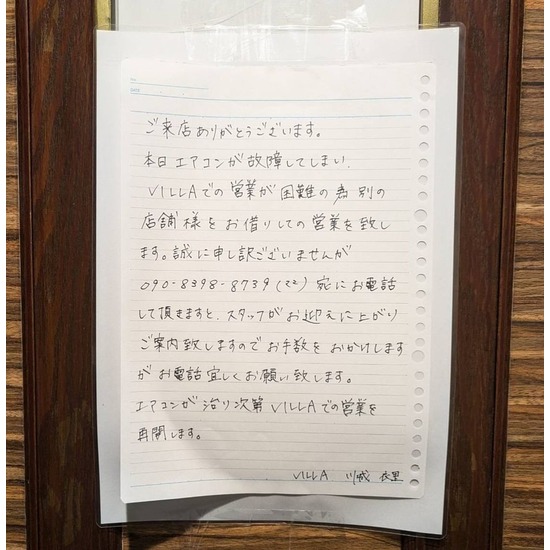 ご来店ありがとうございます。
本日エアコンが故障してしまい、
VILLAでの営業が困難の為別の
店舗様をお借りしての営業を致し
ます。誠に申し訳ございませんが
090-8398-8739(ママ)宛にお電話
して頂きますと、スタッフがお迎えに上がり
ご案内致しますのでお手数をおかけします
がお電話宜しくお願い致します。
エアコンが治り次第VILLAでの営業を
再開します。
VILLA 川城 衣里